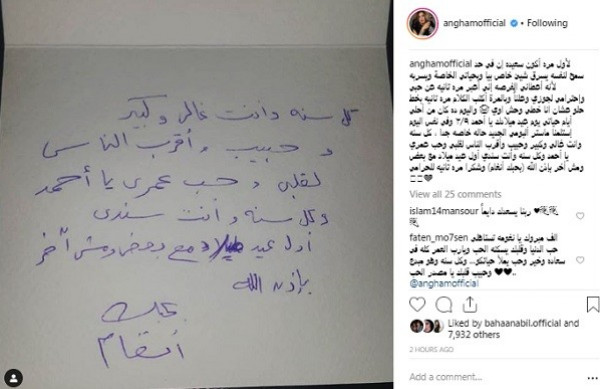 كل سنه وانت غالى وكبير
و حبيب وأقرب الناس
لقلبى وحب عمرى يا أحمد
وكل سنه وانت سندى
أول عيد ميلاد مع بعض ومش آخر
بإذن الله
بحبك
أنغام
anghamofficial • Following
anghamofficial لأول مره أكون سعيده إن في حد
سمح لنفسه يسرق شئ خاص بيا وبحياتي الخاصة ويسربه
لأنه أعطاني الفرصه إني أعبر مره تانيه عن حبي
وإحترامي لجوزي وعلناً وبالمرة أكتب الكلام مره تانيه بخط
حلو عشان أنا خطي وحش اوي واليوم ده كان من أحلى
أيام حياتي يوم عيد ميلادك يا أحمد ٣/٩ وفي نفس اليوم
إستلمنا ماستر ألبومي الجديد حاله خاصه جدا ، كل سنه
وانت غالي وكبير وحبيب وأقرب الناس لقلبي وحب عمري
يا أحمد وكل سنه وأنت سندي أول عيد ميلاد مع بعض
ومش أخر بإذن الله (بحبك أنغام) وشكرا مره تانيه للحرامي
View all 25 comments
islam14mansour ربنا يسعدك دايماً
faten_mo7sen الف مبروك يا نغومه تستاهلي
حب الدنيا وقلبك يسكنه الحب ويارب العمر كله في
سعاده وخير وحب يملأ حياتكو.. وكل سنه وهو مبدع
وحبيب قلبك يا مصدر الحب
@anghamofficial
Liked by bahaanabil.official and
7,932 others
2 HOURS AGO
Add a comment...